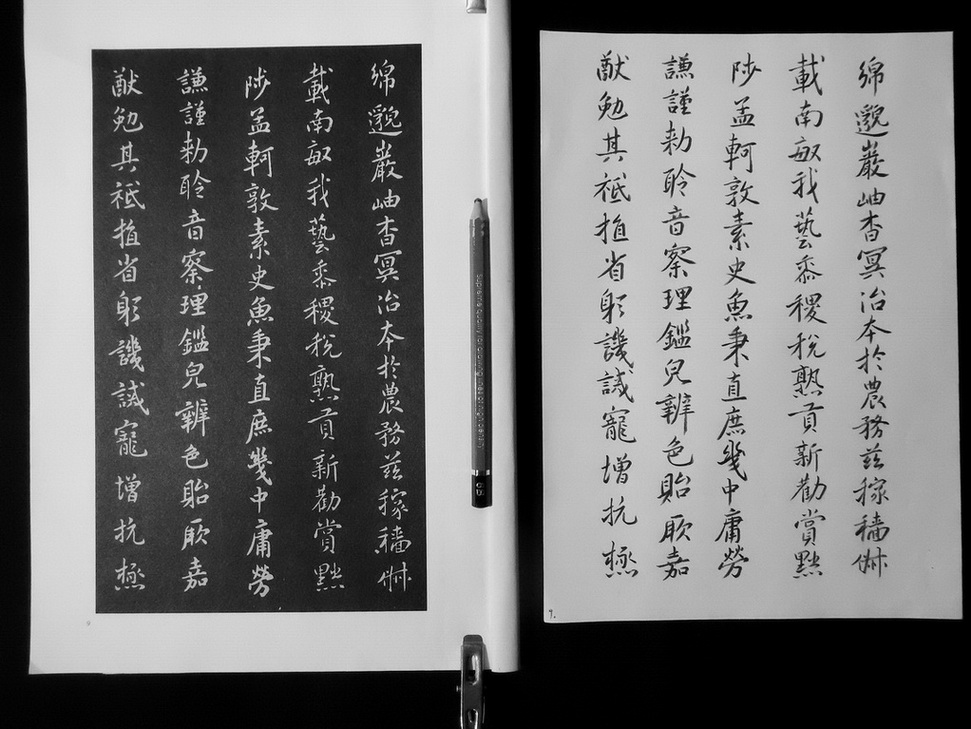 綿邈巖岫杳冥治本於農務茲稼穡俶
載南畝我藝黍稷稅熟貢新勸賞黜
陟孟軻敦素史魚秉直庶幾中庸勞
謙謹勑聆音察理鑑皃辨色貽厥嘉
猷勉其祗植省躬譏誡寵增抗極
6B
綿邈巖岫杳冥治本於農務茲稼穡俶
載南畝我藝黍稷稅熟貢新勸賞黜
陟孟軻敦素史魚秉直庶幾中庸勞
謙謹勑聆音察理鑑皃辨色貽厥嘉
猷勉其祗植省躬譏誡寵增抗極
9.